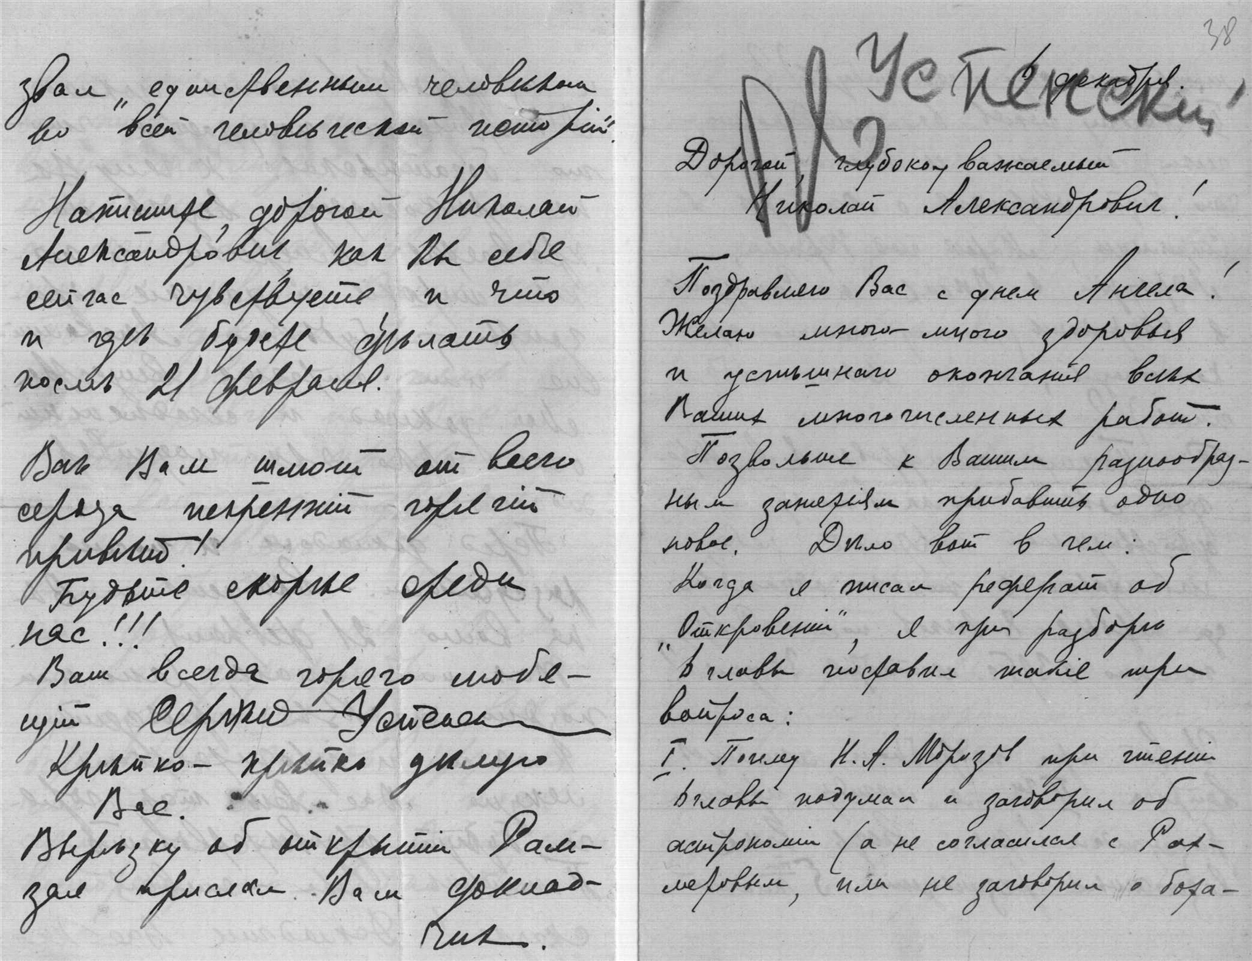 звал „единственным человѣком
во всей человѣческой исторіи“.
Напишите, дорогой Николай
Александрович, как Вы себе
сейчас чувствуете и что
и гдѣ будете дѣлать
послѣ 21 февраля.
Всѣ Вам шлют от всего
сердца искренній горячій
привѣт!
Будьте скорѣе среди
нас!!!
Ваш всегда горячо любя-
щій Сергѣй Успенск
Крѣпко-крѣпко цѣлую
Вас.
Вырѣзку об открытіи Рам-
зая прислал Вам доклад-
чик.
38
Успенский
6 декабря.
Дорогой глубокоуважаемый
Николай Александрович!
Поздравляю Вас с днем Ангела!
Желаю много-много здоровья
и успѣшнаго окончанія всѣх
Ваших многочисленных работ.
Позвольте к Вашим разнообраз-
ным занятіям прибавить одно
новое. Дѣло вот в чем:
Когда я писал реферат об
„Откровеніи“, я при разборѣ
6 главы поставил такіе три
вопроса:
I. Почему Н. А. Морозов при чтеніи
6 главы подумал и заговорил об
астрономіи (а не согласился с
меровым, или не заговорил о бота-